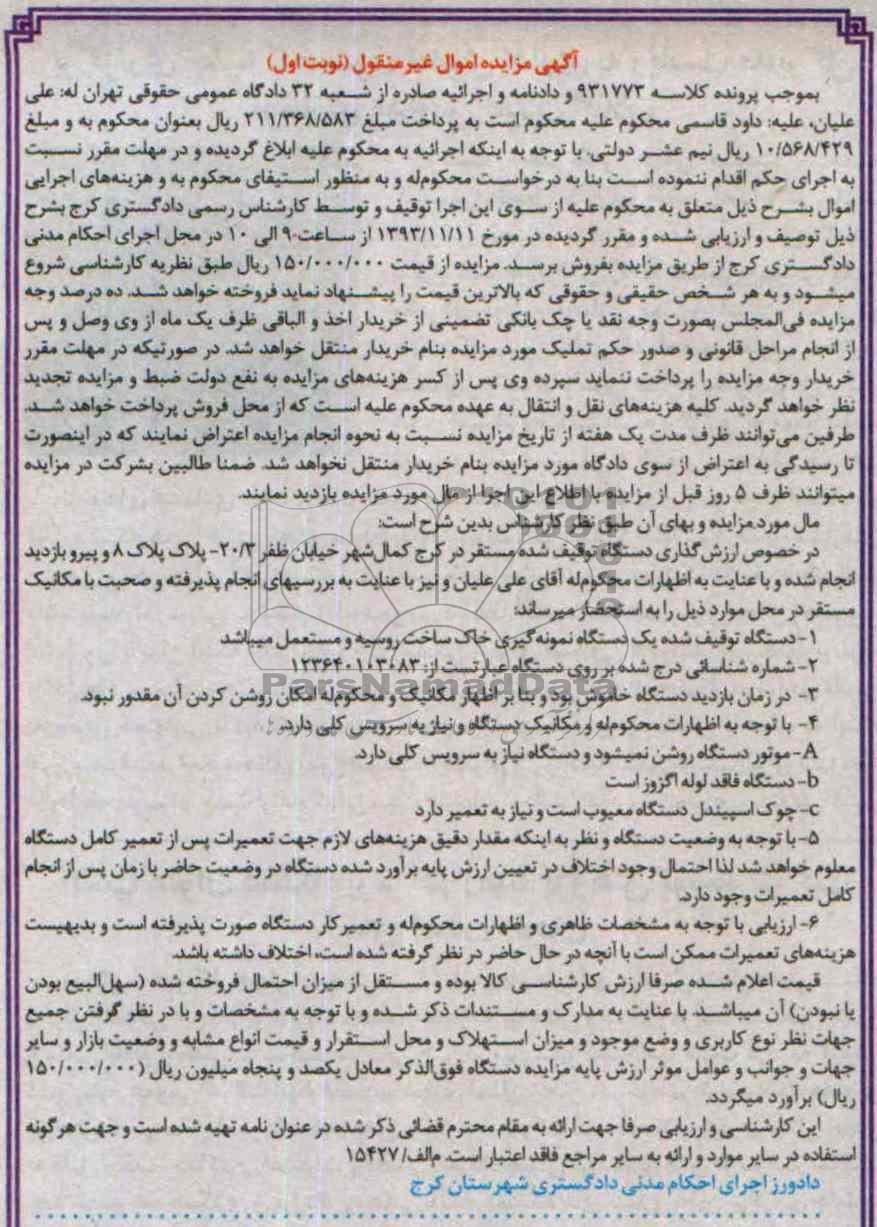 آگهی مزایده اموال غیر منقول (نوبت اول)
بموجب پرونده کلاسه ۹۳۱۷۷۳ و دادنامه و اجرائیه صادره از شعبه ۳۲ دادگاه عمومی حقوقی تهران له: علی
علیان، علیه: داود قاسمی محکوم علیه محکوم است به پرداخت مبلغ ۲۱۱/۳۶۸/۵۸۳ ریال بعنوان محکوم به و مبلغ
۱۰/۵۶۸/۴۲۹ ریال نیم عشر دولتی. با توجه به اینکه اجرائیه به محکوم علیه ابلاغ گردیده و در مهلت مقرر نسبت
به اجرای حکم اقدام ننموده است بنا به درخواست محکوم‌له و به منظور استیفای محکوم به و هزینه‌های اجرایی
اموال بشرح ذیل متعلق به محکوم علیه از سوی این اجرا توقیف و توسط کارشناس رسمی دادگستری کرج بشرح
ذیل توصیف و ارزیابی شده و مقرر گردیده در مورخ ۱۳۹۳/۱۱/۱۱ از ساعت۹ الی ۱۰ در محل اجرای احکام مدنی
دادگستری کرج از طریق مزایده بفروش برسد. مزایده از قیمت ۱۵۰/۰۰۰/۰۰۰ ریال طبق نظریه کارشناسی شروع
میشود و به هر شخص حقیقی و حقوقی که بالاترین قیمت را پیشنهاد نماید فروخته خواهد شد. ده درصد وجه
مزایده فی‌المجلس بصورت وجه نقد یا چک بانکی تضمینی از خریدار اخذ و الباقی ظرف یک ماه از وی وصل و پس
از انجام مراحل قانونی و صدور حکم تملیک مورد مزایده بنام خریدار منتقل خواهد شد. در صورتیکه در مهلت مقرر
خریدار وجه مزایده را پرداخت ننماید سپرده وی پس از کسر هزینه‌های مزایده به نفع دولت ضبط و مزایده تجدید
نظر خواهد گردید. کلیه هزینه‌های نقل و انتقال به عهده محکوم علیه است که از محل فروش پرداخت خواهد شد.
طرفین می‌توانند ظرف مدت یک هفته از تاریخ مزایده نسبت به نحوه انجام مزایده اعتراض نمایند که در اینصورت
تا رسیدگی به اعتراض از سوی دادگاه مورد مزایده بنام خریدار منتقل نخواهد شد. ضمنا طالبین بشرکت در مزایده
میتوانند ظرف ۵ روز قبل از مزایده با اطلاع این اجرا از مال مورد مزایده بازدید نمایند.
مال مورد مزایده و بهای آن طبق نظر کارشناس بدین شرح است:
در خصوص ارزش گذاری دستگاه توقیف شده مستقر در کرج کمال‌شهر خیابان ظفر ۲۰/۳- پلاک پلاک ۸ و پیرو بازدید
انجام شده و با عنایت به اظهارات محکوم‌له آقای علی علیان و نیز با عنایت به بررسیهای انجام پذیرفته و صحبت با مکانیک
مستقر در محل موارد ذیل را به استحضار میرساند:
۱- دستگاه توقیف شده یک دستگاه نمونه گیری خاک ساخت روسیه و مستعمل میباشد
۲- شماره شناسائی درج شده بر روی دستگاه عبارتست از: ۱۲۳۶۴۰۱۰۳۰۸۳
ParsNamadData
۳- در زمان بازدید دستگاه خاموش بود و بنا بر اظهار مکانیک و محکوم‌له امکان روشن کردن آن مقدور نبود.
۴- با توجه به اظهارات محکوم‌له و مکانیک دستگاه و نیاز به سرویس کلی دارد.
A- موتور دستگاه روشن نمیشود و دستگاه نیاز به سرویس کلی دارد.
b- دستگاه فاقد لوله اگزوز است
c- چوک اسپیندل دستگاه معیوب است و نیاز به تعمیر دارد
۵- با توجه به وضعیت دستگاه و نظر به اینکه مقدار دقیق هزینه‌های لازم جهت تعمیرات پس از تعمیر کامل دستگاه
معلوم خواهد شد لذا احتمال وجود اختلاف در تعیین ارزش پایه برآورد شده دستگاه در وضعیت حاضر با زمان پس از انجام
کامل تعمیرات وجود دارد.
۶- ارزیابی با توجه به مشخصات ظاهری و اظهارات محکوم‌له و تعمیرکار دستگاه صورت پذیرفته است و بدیهیست
هزینه‌های تعمیرات ممکن است با آنچه در حال حاضر در نظر گرفته شده است، اختلاف داشته باشد.
قیمت اعلام شده صرفا ارزش کارشناسی کالا بوده و مستقل از میزان احتمال فروخته شده (سهل‌البیع بودن
یا نبودن) آن میباشد. با عنایت به مدارک و مستندات ذکر شده و با توجه به مشخصات و با در نظر گرفتن جمیع
جهات نظر نوع کاربری و وضع موجود و میزان استهلاک و محل استقرار و قیمت انواع مشابه و وضعیت بازار و سایر
جهات و جوانب و عوامل موثر ارزش پایه مزایده دستگاه فوق‌الذکر معادل یکصد و پنجاه میلیون ریال (۱۵۰/۰۰۰/۰۰۰
ریال) برآورد میگردد.
این کارشناسی و ارزیابی صرفا جهت ارائه به مقام محترم قضائی ذکر شده در عنوان نامه تهیه شده است و جهت هر گونه
استفاده در سایر موارد و ارائه به سایر مراجع فاقد اعتبار است. م‌الف/ ۱۵۴۲۷
دادورز اجرای احکام مدنی دادگستری شهرستان کرج